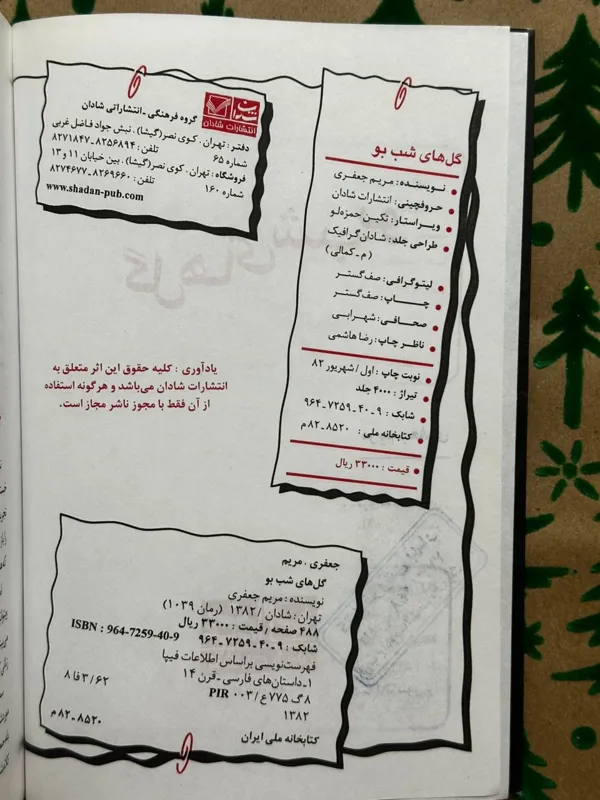 شادان
انتشارات شادان
گروه فرهنگی ـ انتشاراتی شادان
دفتر : تهران . کوی نصر(گیشا) . نبش جواد فاضل غربی
شماره ۶۵ تلفن : ۸۲۵۶۸۹۴ ـ ۸۲۷۱۸۴۷
فروشگاه : تهران . کوی نصر(گیشا). بین خیابان ۱۱ و ۱۳
شماره ۱۶۰ تلفن : ۸۲۶۹۶۶۰ ـ ۸۲۷۴۶۷۷
www.shadan-pub.com
گل‌های شب بو
نویسنده : مریم جعفری
حروفچینی : انتشارات شادان
ویراستار : تکین حمزه‌لو
طراحی جلد : شادان‌گرافیک
( م ـ کمالی )
لیتوگرافی : صف‌گستر
چـــاپ : صف‌گستر
صحـافـی : شهـرابـی
ناظر چاپ : رضا هاشمی
نوبت چاپ : اول / شهریور ۸۲
تیراژ : ۴۰۰۰ جلد
شابک : ۹ ـ ۴۰ ـ ۷۲۵۹ ـ ۹۶۴
کتابخانه ملی : ۸۵۲۰ ـ ۸۲ م
قیمت : ۳۳۰۰۰ ریال
یادآوری : کلیه حقوق این اثر متعلق به
انتشارات شادان می‌باشد و هرگونه استفاده
از آن فقط با مجوز ناشر مجاز است.
جعفری . مریم
گل‌های شب بو
نویسنده : مریم جعفری
تهران : شادان / ۱۳۸۲ (رمان ۱۰۳۹)
۴۸۸ صفحه / قیمت : ۳۳۰۰۰ ریال
شابک : ۹ ـ ۴۰ ـ ۷۲۵۹ ـ ۹۶۴ ISBN : 964-7259-40-9
فهرست‌نویسی براساس اطلاعات فیپا
۱ـ داستان‌های فارسی ـ قرن ۱۴
۸ گ ۷۷۵ ع / PIR ۰۰۳ ۸ فا ۳/۶۲
۱۳۸۲
کتابخانه ملی ایران ۸۵۲۰ ـ ۸۲ م